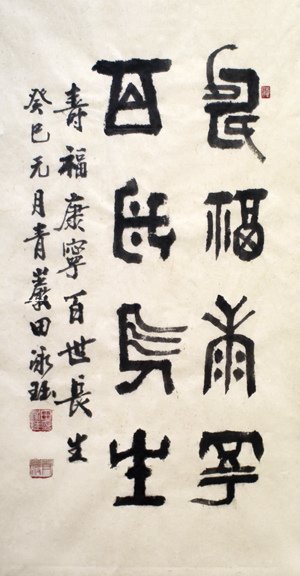 壽福康寧
百世長生
寿福康寧百世長生
癸巳元月青巖田泳珏